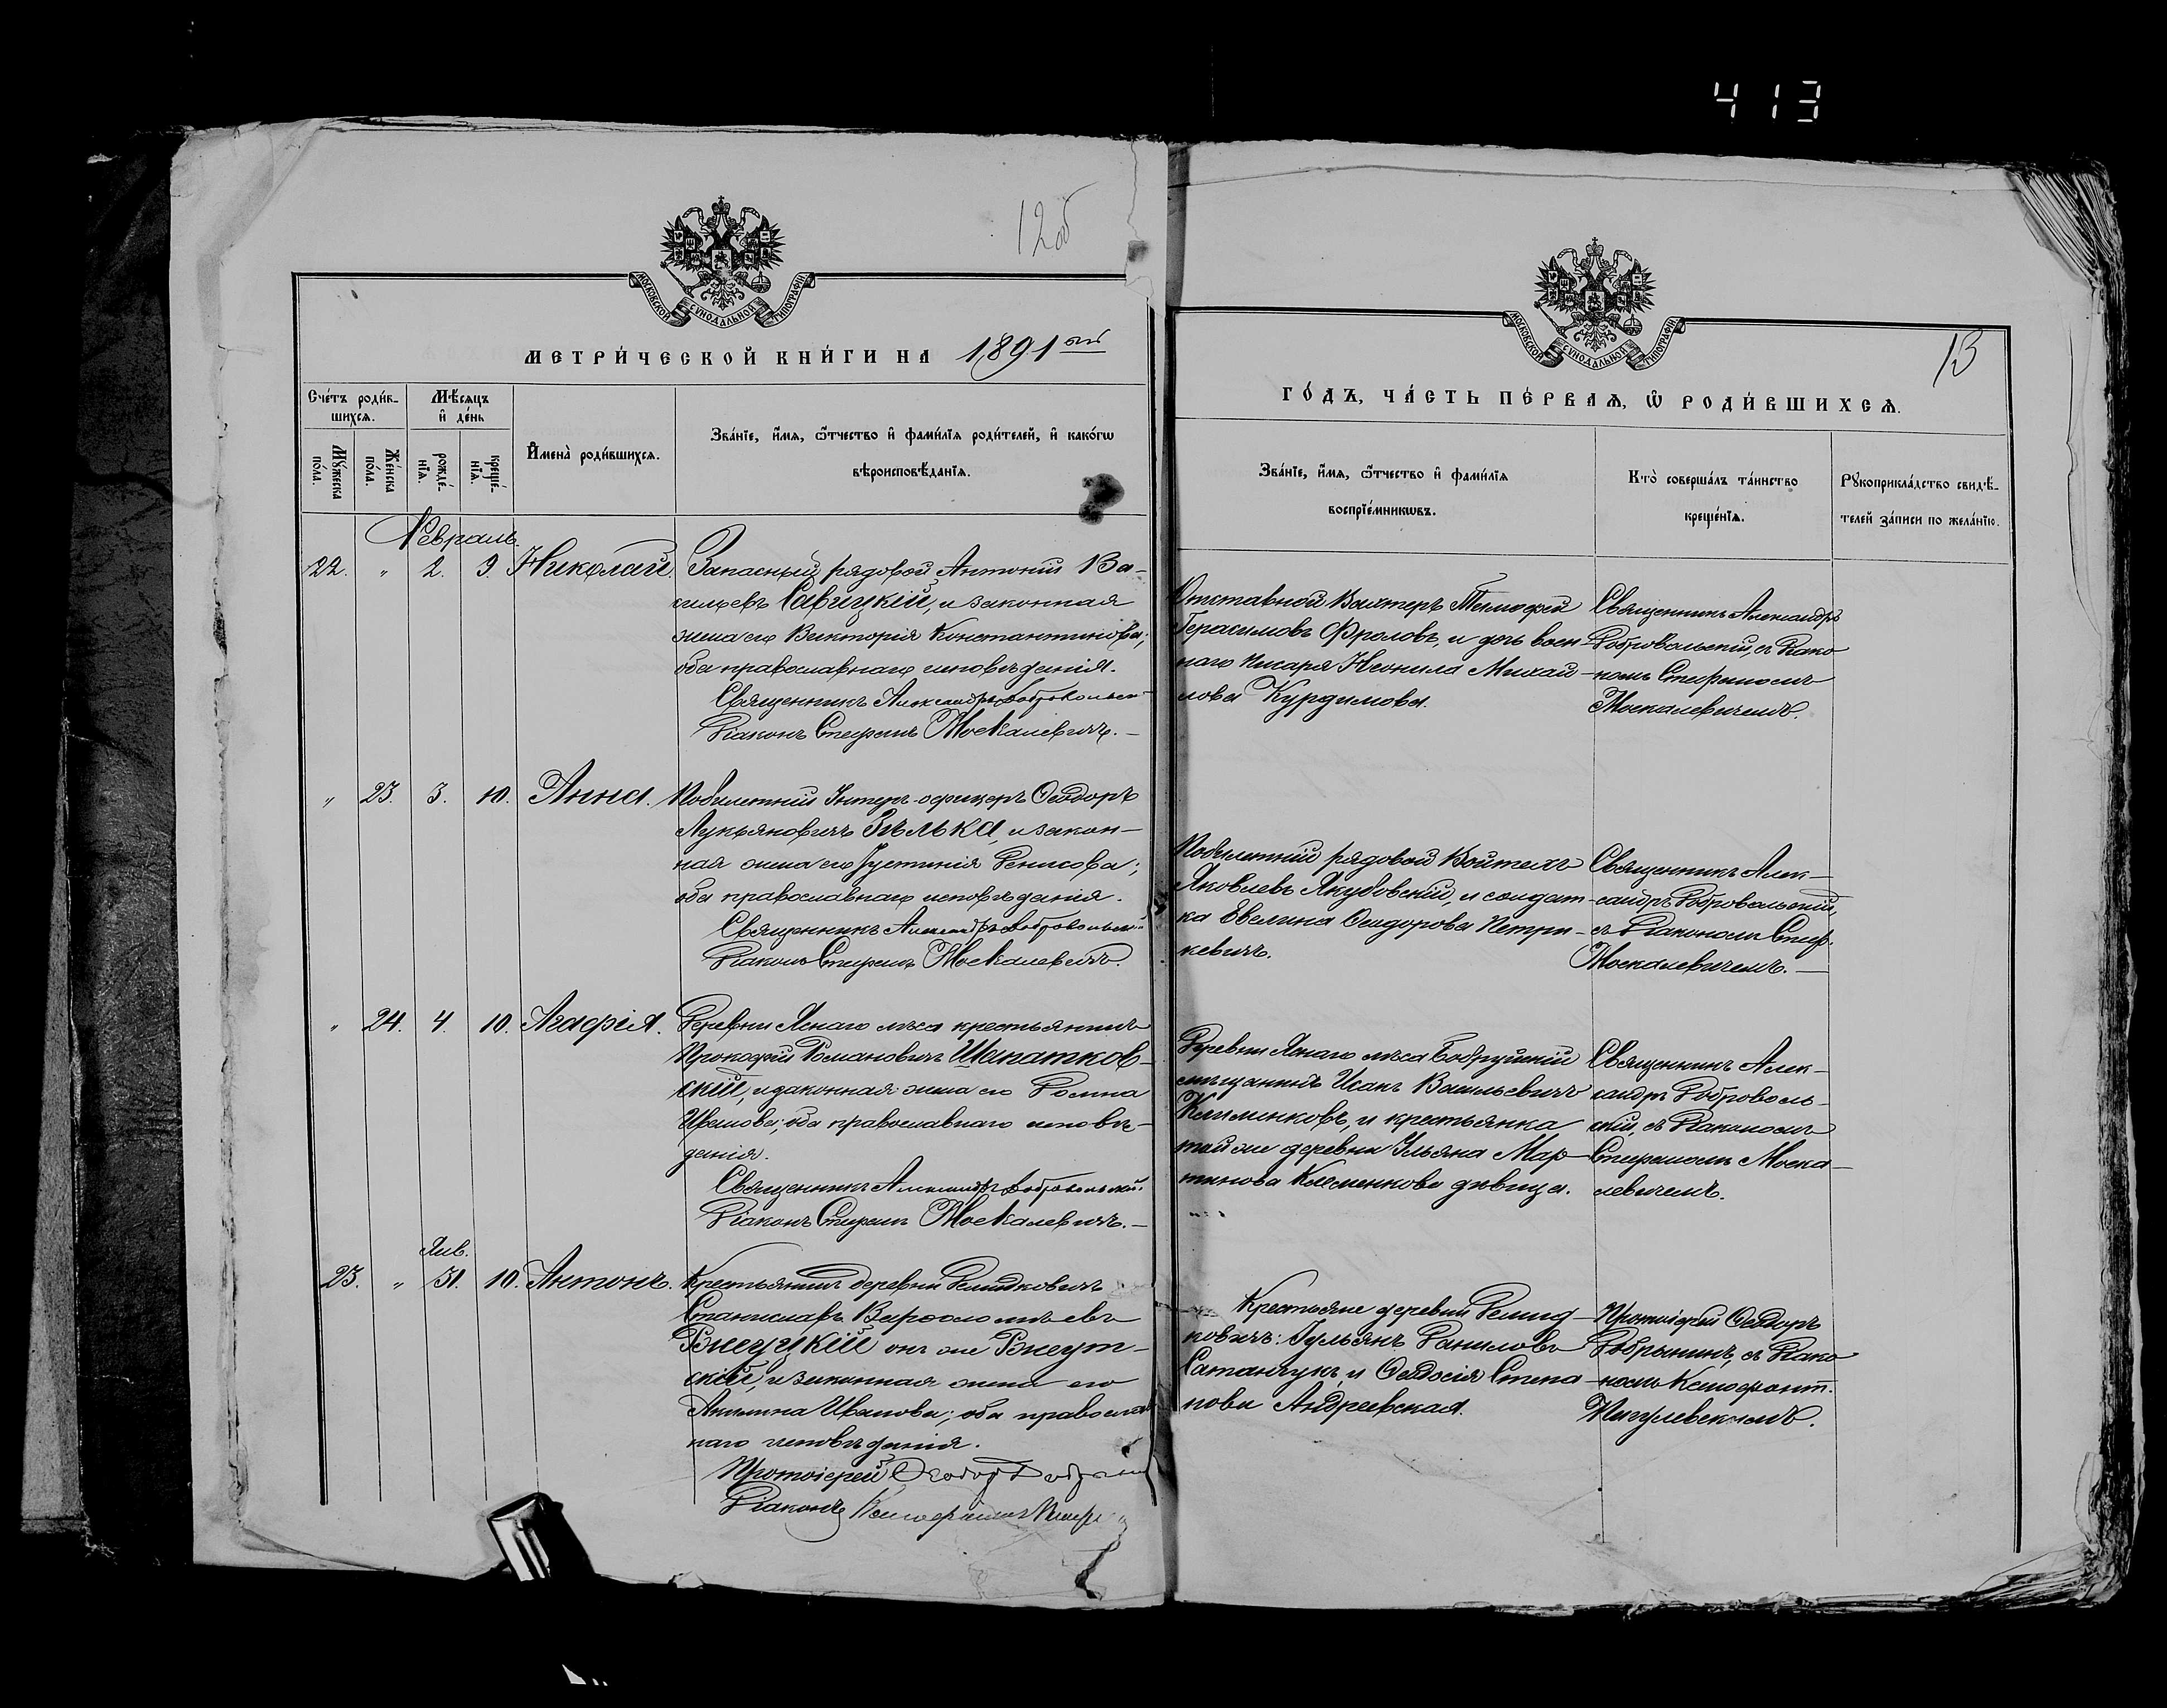 413
12об
МОСКОВСКОЙ СѴНОДАЛЬНОЙ ТИПОГРАФІИ
МЕТРИ́ЧЕСКОЙ КНИ́ГИ НА 1891ый
Сче́тъ роди́в-
шихсѧ.
Мѣ́сѧцъ
и҆ де́нь
Мꙋ́жеска
по́ла.
Же́нска
по́ла.
рожде́-
нїѧ.
креще́-
нїѧ.
И҆мена̀ роди́вшихсѧ.
Зва́нїе, и҆́мѧ, ѻ҆́тчество и҆ фами́лїѧ роди́телей, и҆ како́гѡ
вѣроисповѣ́данїѧ.
Февраль.
22. " 2. 9. Николай. Запасный рядовой Антоній Ва-
сильевъ Савицкій, и законная
жена его Викторія Константинова;
оба православнаго исповѣданія.
Священникъ Александръ Добровольскій
Діаконъ Стефанъ Москалевичъ.
" 23. 3. 10. Анна. Побилетній Унтеръ-офицеръ Ѳеодоръ
Лукьяновичъ Бѣлька, и закон-
ная жена его Іустинія Денисова;
оба православнаго исповѣданія.
Священникъ Александръ Добровольскій
Діаконъ Стефанъ Москалевичъ.
" 24. 4. 10. Агафія. Деревни Яснаго лѣса крестьянинъ
Прокофій Романовичъ Шепатков-
скій, и законная жена его Домна
Иванова; оба православнаго исповѣ-
данія.
Священникъ Александръ Добровольскій.
Діаконъ Стефанъ Москалевичъ.
Янв.
23. " 31. 10. Антонъ. Крестьянинъ деревни Демидковичъ
Станиславъ Варѳоломѣевъ
Ржеуцкій онъ же Ржеут-
скій, и законная жена его
Акилина Иванова; оба православ
наго исповѣданія.
Протоіерей Ѳеодоръ Добрынинъ
Діаконъ Ксенофонтъ
МОСКОВСКОЙ СѴНОДАЛЬНОЙ ТИПОГРАФІИ
13
ГО́ДЪ, ЧА́СТЬ ПЕ́РВАѦ, Ѡ҆ РОДИ́ВШИХСѦ.
Зва́нїе, и҆́мѧ, ѻ҆́тчество и҆ фами́лїѧ
воспрїе́мникѡвъ.
Кто̀ соверша́лъ та́инство
креще́нїѧ.
Рꙋкоприкла́дство свидѣ́-
телей за́писи по жела́нїю.
Отставной Вахтеръ Тимофей
Герасимовъ Фроловъ, и дочь воен-
наго писаря Неонила Михай-
лова Курдимова.
Священникъ Александръ
Добровольскій, съ Діако
номъ Стефаномъ
Москалевичемъ.
Побилетній рядовой Войтехъ
Яковлевъ Якубовскій, и солдат-
ка Евелина Ѳеодорова Петри-
кевичъ.
Священникъ Алек-
сандръ Добровольскій,
съ Діакономъ Стеф.
Москалевичемъ.
Деревни Яснаго лѣса Бобруйскій
мѣщанинъ Исакъ Васильевичъ
Клименковъ, и крестьянка
той же деревни Ульяна Мар-
тинова Клеменкова дѣвица.
Священникъ Алек-
сандръ Доброволь-
скій, съ Діакономъ
Стефаномъ Моска-
левичемъ.
Крестьяне деревни Демид-
ковичъ: Іульянъ Даниловъ
Сатанчукъ, и Ѳеодосія Степа-
нова Андреевская.
Протоіерей Ѳеодоръ
Добрынинъ, съ Діако
номъ Ксенофонт.
Пигулевскимъ.